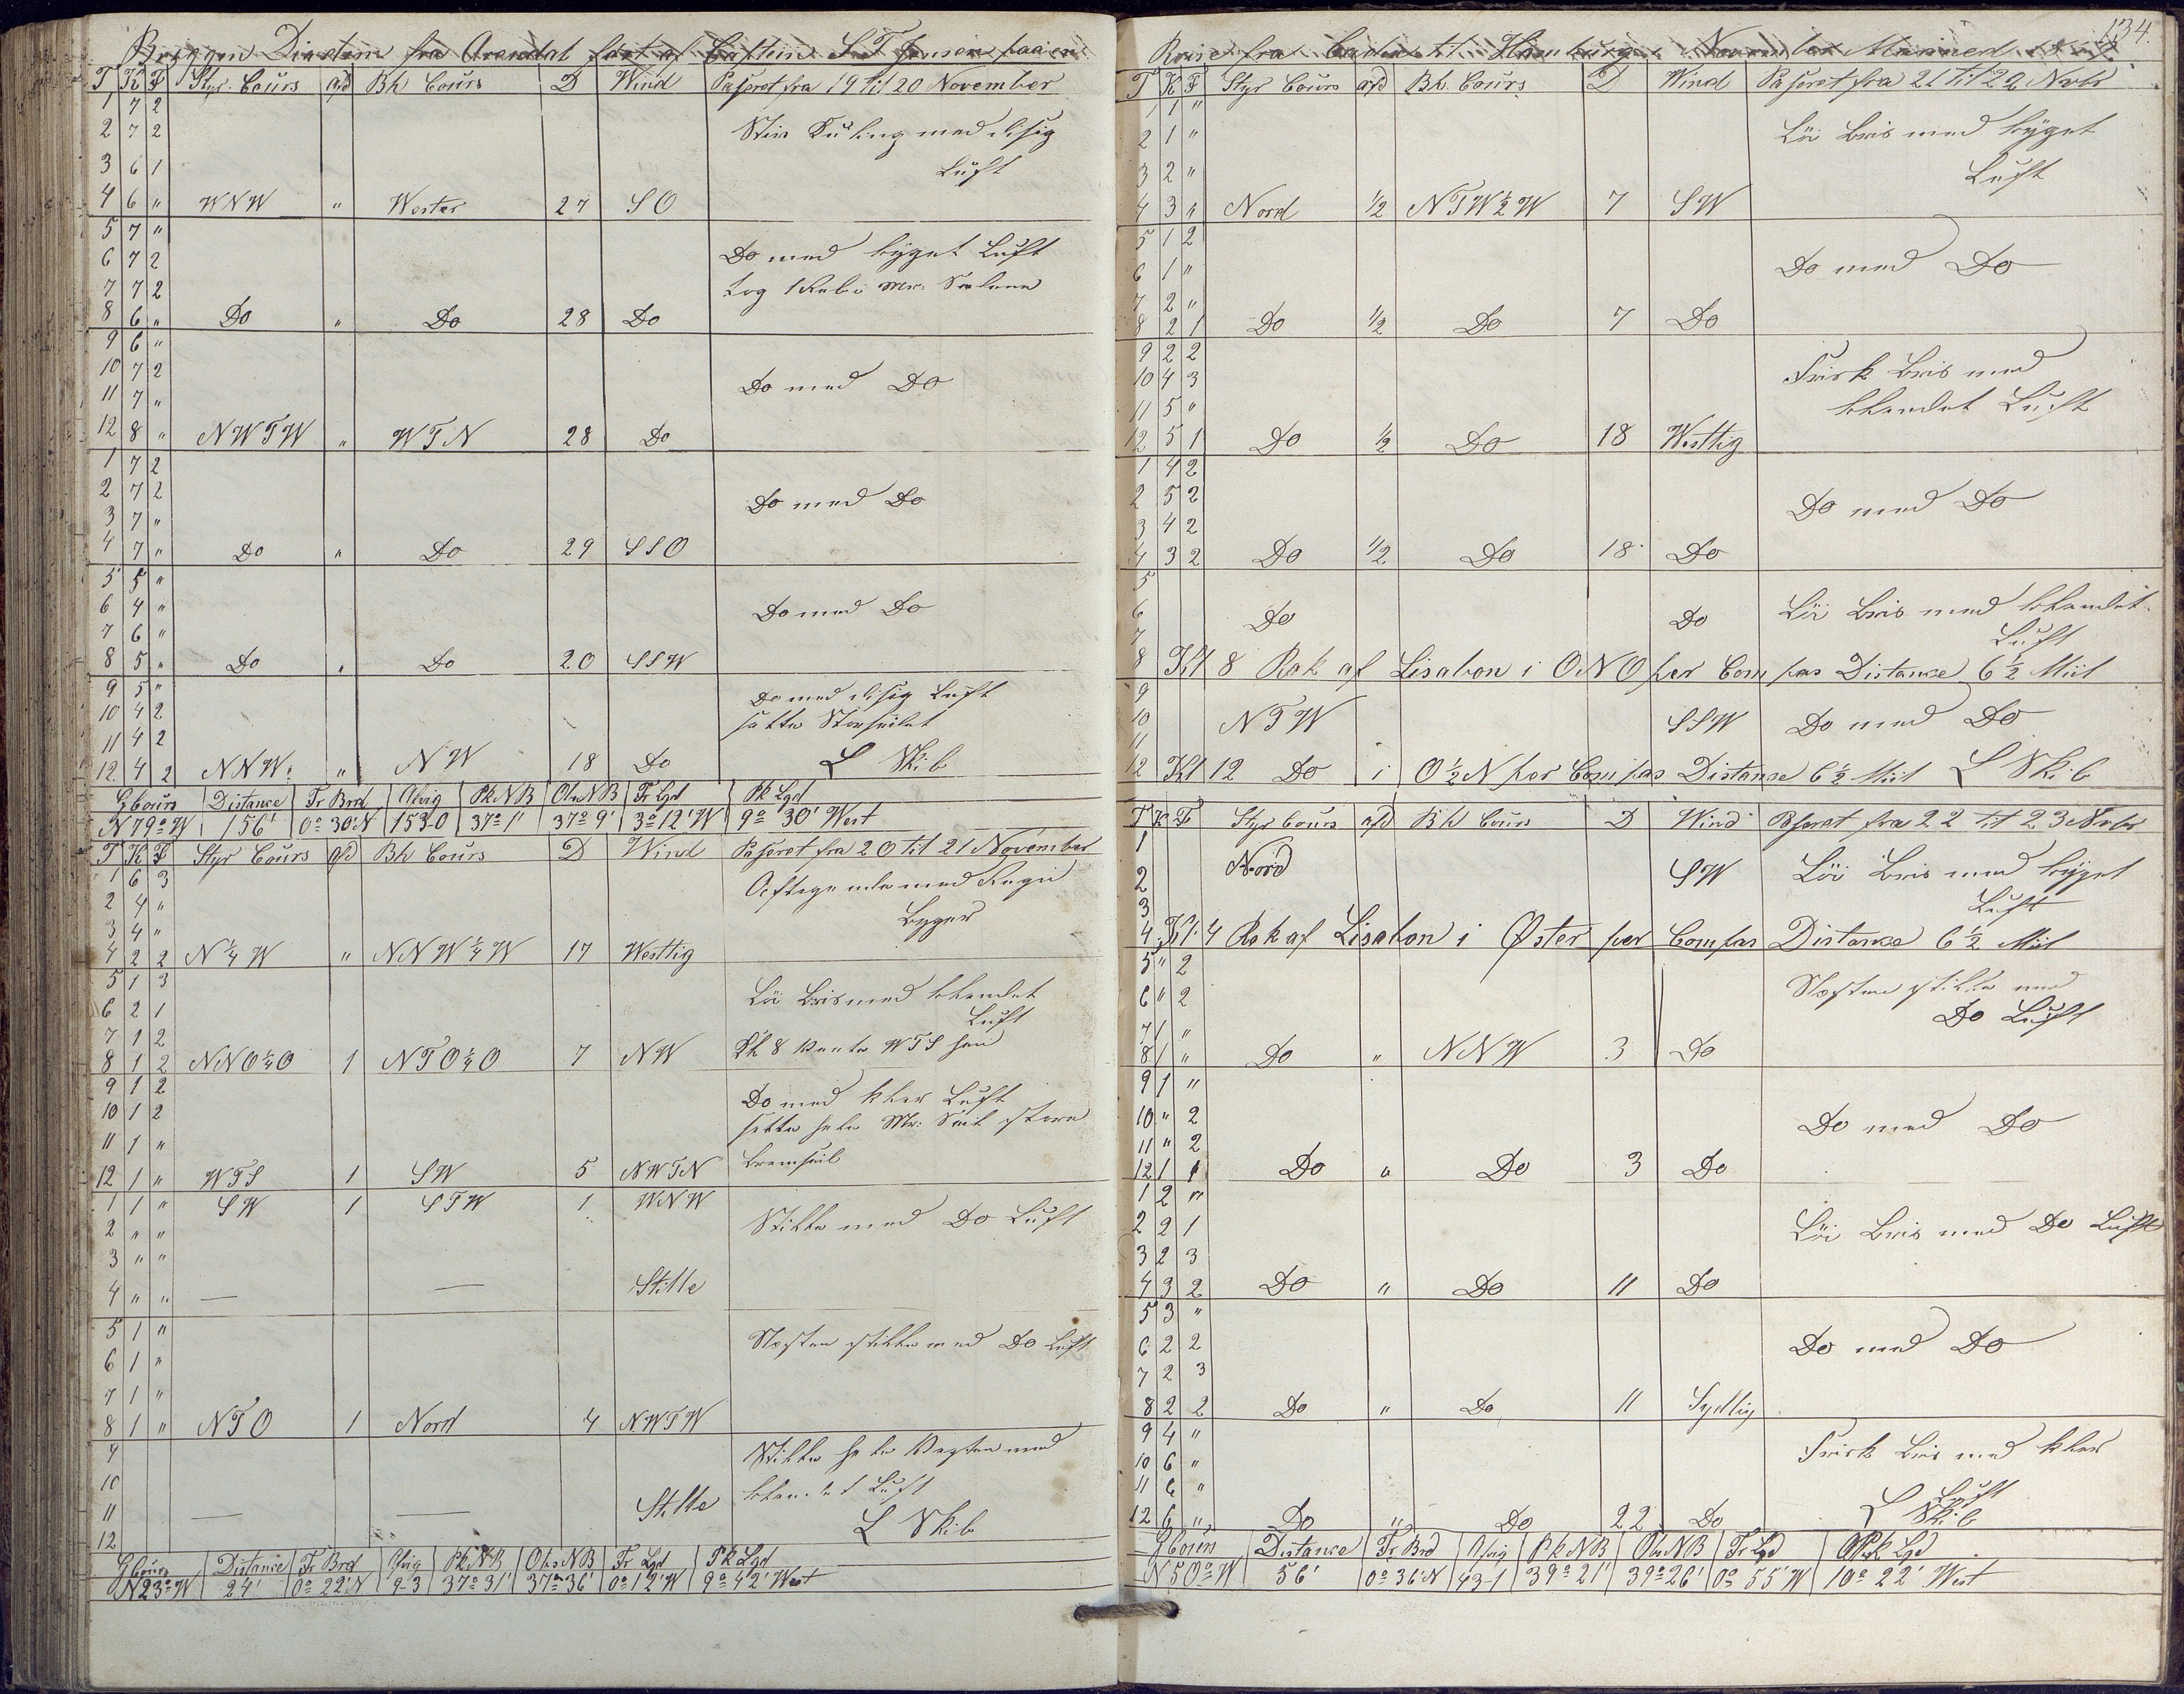 Briggen Diadem fra Arendal fört af Captein S T Jensen paa en
T K F Styr. Cours afd Bh Cours D Wind Passeret fra 19 til 20 November
1 7 2
2 7 2 Stiv Kuling med disig
3 6 1 Luft
4 6 " WNW " Wester 27 SO
5 7 "
6 7 2 Do med byget Luft
7 7 2 tog 1 Reb i Mr: Seilene
8 6 " Do " Do 28 Do
9 6 "
10 7 2 Do med Do
11 7 "
12 8 " NWTW " WTN 28 Do
1 7 2
2 7 2 Do med Do
3 7 "
4 7 " Do " Do 29 SSO
5 5 "
6 4 " Do med Do
7 6 "
8 5 " Do " Do 20 SSW
9 5 " Do med disig Luft
10 4 2 satte Storseilet
11 4 2
12 4 2 NNW " NW 18 Do L Skib
G Cours Distance Fr Brd Afvig Pk NB Obs NB Fr Lgd Pk Lgd
N 79° W 156' 0° 30' N 153.0 37° 1' 37° 9' 3° 12' W 9° 30' West
T K F Styr Cours afd Bh Cours D Wind Passeret fra 20 til 21 November
1 6 3 Aftagende med Regn
2 4 " Byger
3 4 "
4 2 2 N 1/4 W " NNW 1/4 W 17 Westlig
5 1 3 Löi Bris med blandet
6 2 1 Luft
7 1 2
8 1 2 NNO 1/4 O 1 NTO 1/4 O 7 NW Kl 8 vendte WTS hen
9 1 2 Do med klar Luft
10 1 2 satte hele Mr: Seil store
11 1 "
12 1 " WTS 1 SW 5 NWTN Bramseil
1 1 " SW 1 STW 1 WNW
2 " " Stille med Do Luft
3 " "
4 " " — — Stille
5 1 " Næsten stille med Do Luft
6 1 "
7 1 "
8 1 " NTO 1 Nord 4 NWTW
9 Stille hele Vagten med
10 blandet Luft
11 — — Stille
12 L Skib
G Cours Distance Fr Brd Afvig Pk NB Obs NB Fr Lgd Pk Lgd
N 23° W 24' 0° 22' N 9.3 37° 31' 37° 36' 0° 12' W 9° 42' West
134.
Reise fra Cadix til Hamburg November Maaned
T K F Styr Cours afd Bh. Cours D Wind Passeret fra 21 til 22 Novbr
1 1 "
2 1 " Löi Bris med byget
3 2 " Luft
4 3 " Nord 1/2 NTW 1/2 W 7 SW
5 1 2
6 1 " Do med Do
7 2 "
8 2 1 Do 1/2 Do 7 Do
9 2 2
10 4 3 Frisk Bris med
11 5 " blandet Luft
12 5 1 Do 1/2 Do 18 Westlig
1 4 2
2 5 2 Do med Do
3 4 2
4 3 2 Do 1/2 Do 18 Do
5
6 Do Do Löi Bris med blandet
7 Luft
8 Kl 8 Rok af Lisabon i ONO per Compas Distance 6 1/2 Miil
9
10 NTW SSW Do med Do
11
12 Kl 12 Do i O 1/2 N per Compas Distance 6 1/2 Miil L Skib
T K F Styr Cours afd Bh Cours D Wind Passeret fra 22 til 23 Novbr
1
2 Nord SW Löi Bris med byget
3 Luft
4 Kl. 4 Rok af Lisabon i Øster per Compas Distance 6 1/2 Miil
5 " 2
6 " 2 Næsten stille med
7 1 " Do Luft
8 1 " Do " NNW 3 Do
9 1 "
10 " 2 Do med Do
11 " 2
12 1 1 Do " Do 3 Do
1 2 "
2 2 1 Löi Bris med Do Luft
3 2 3
4 3 2 Do " Do 11 Do
5 3 "
6 2 2 Do med Do
7 2 3
8 2 2 Do " Do 11 Sydlig
9 4 "
10 6 " Frisk Bris med klar
11 6 " Luft
12 6 " Do " Do 22 Do L Skib
G Cours Distance Fr Brd Afvig Pk NB Obs NB Fr Lgd Pk Lgd
N 50° W 56' 0° 36' N 43.1 39° 21' 39° 26' 0° 55' W 10° 22' West